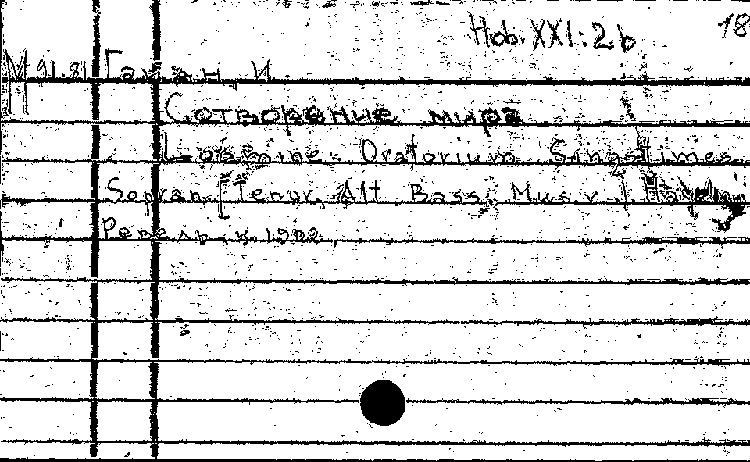 Hob. XXI:2.b 18
М 91.81 Гайдн, И.
Сотворение мира
Oratorium. Singstimes.
Sopran [Tenor, Alt Bass. Mus. v. J. Haydn
Ревель 1902.